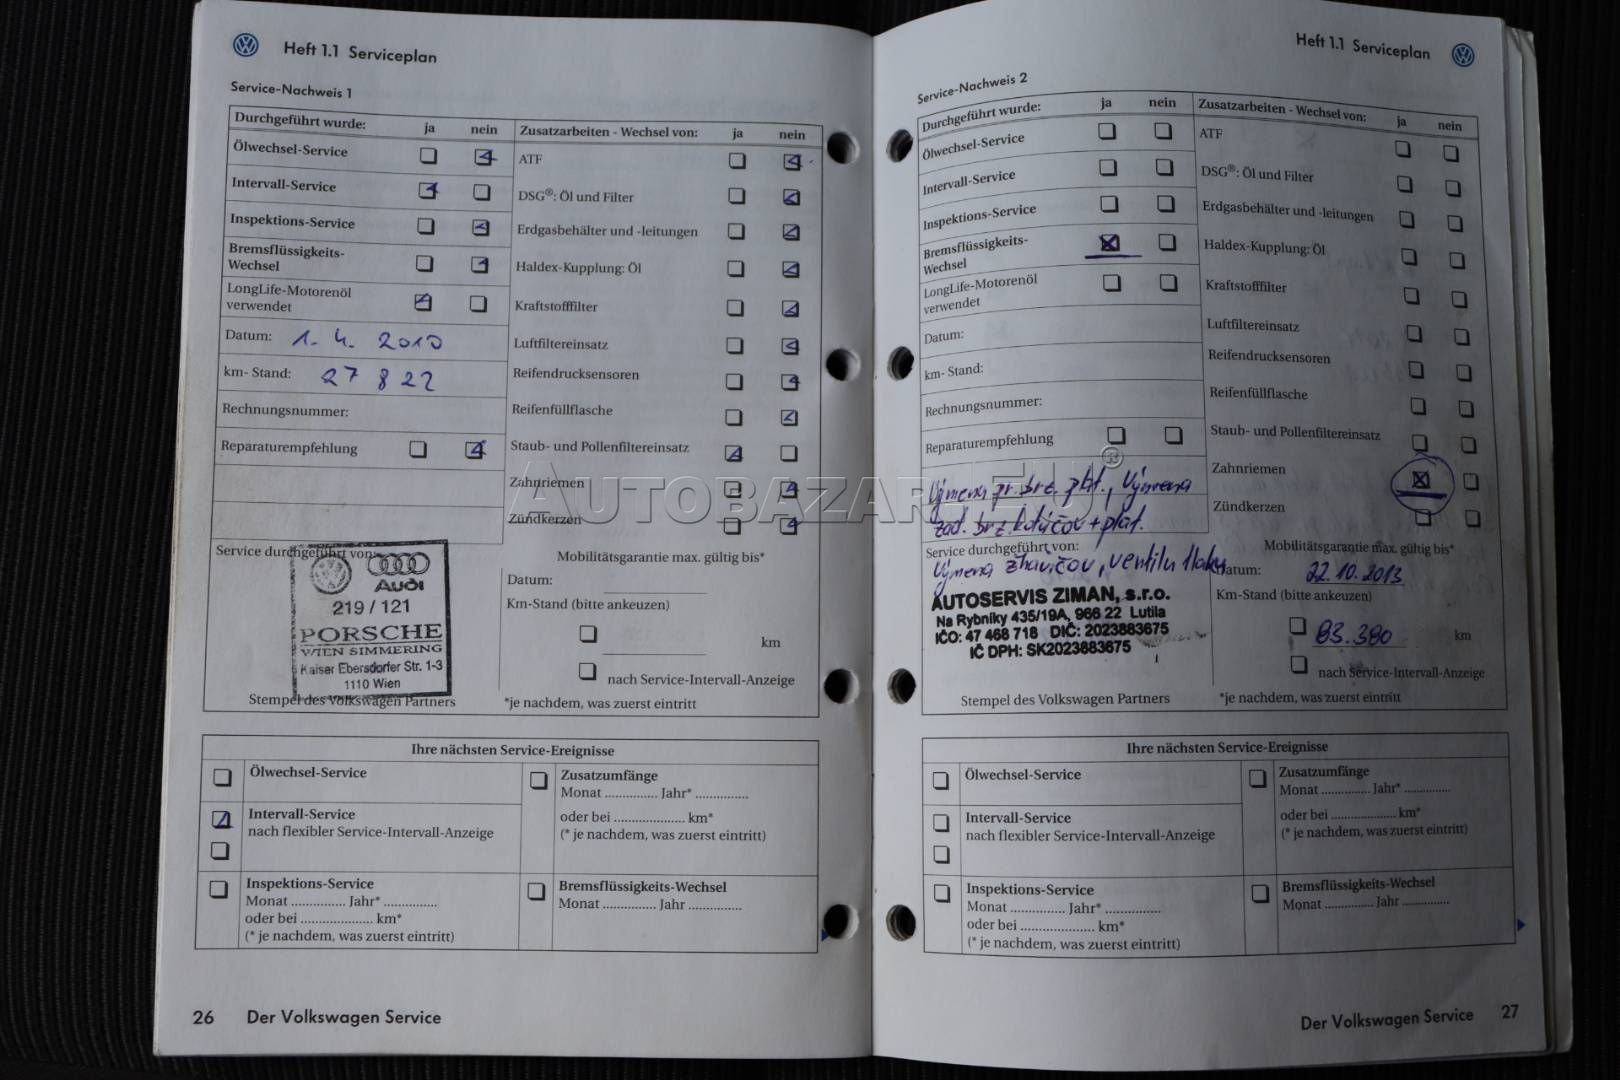 Heft 1.1 Serviceplan
Service-Nachweis 1
Durchgeführt wurde: ja nein
Ölwechsel-Service
Intervall-Service
Inspektions-Service
Bremsflüssigkeits-
Wechsel
LongLife-Motorenöl
verwendet
Datum: 1. 4. 2010
km- Stand: 27 822
Rechnungsnummer:
Reparaturempfehlung
Zusatzarbeiten - Wechsel von: ja nein
ATF
DSG®: Öl und Filter
Erdgasbehälter und -leitungen
Haldex-Kupplung: Öl
Kraftstofffilter
Luftfiltereinsatz
Reifendrucksensoren
Reifenfüllflasche
Staub- und Pollenfiltereinsatz
Zahnriemen
Zündkerzen
Service durchgeführt von:
Audi
219 / 121
PORSCHE
WIEN SIMMERING
Kaiser Ebersdorfer Str. 1-3
1110 Wien
Stempel des Volkswagen Partners
Mobilitätsgarantie max. gültig bis*
Datum:
Km-Stand (bitte ankeuzen)
km
nach Service-Intervall-Anzeige
*je nachdem, was zuerst eintritt
Ihre nächsten Service-Ereignisse
Ölwechsel-Service
Intervall-Service
nach flexibler Service-Intervall-Anzeige
Inspektions-Service
Monat ............... Jahr* ...............
oder bei .................... km*
(* je nachdem, was zuerst eintritt)
Zusatzumfänge
Monat ............... Jahr* ...............
oder bei .................... km*
(* je nachdem, was zuerst eintritt)
Bremsflüssigkeits-Wechsel
Monat ............... Jahr ...............
26 Der Volkswagen Service
Heft 1.1 Serviceplan
Service-Nachweis 2
Durchgeführt wurde: ja nein
Ölwechsel-Service
Intervall-Service
Inspektions-Service
Bremsflüssigkeits-
Wechsel
LongLife-Motorenöl
verwendet
Datum:
km- Stand:
Rechnungsnummer:
Reparaturempfehlung
Výmena pr. brz. plat., Výmena
zad. brz. kotúčov + plat.
Zusatzarbeiten - Wechsel von: ja nein
ATF
DSG®: Öl und Filter
Erdgasbehälter und -leitungen
Haldex-Kupplung: Öl
Kraftstofffilter
Luftfiltereinsatz
Reifendrucksensoren
Reifenfüllflasche
Staub- und Pollenfiltereinsatz
Zahnriemen
Zündkerzen
Service durchgeführt von:
Výmena žhavičov, ventilu tlaku
AUTOSERVIS ZIMAN, s.r.o.
Na Rybníky 435/19A, 966 22 Lutila
IČO: 47 468 718 DIČ: 2023883675
IČ DPH: SK2023883675
Stempel des Volkswagen Partners
Mobilitätsgarantie max. gültig bis*
Datum: 22.10.2013
Km-Stand (bitte ankeuzen)
83.380 km
nach Service-Intervall-Anzeige
*je nachdem, was zuerst eintritt
Ihre nächsten Service-Ereignisse
Ölwechsel-Service
Intervall-Service
nach flexibler Service-Intervall-Anzeige
Inspektions-Service
Monat ............... Jahr* ...............
oder bei .................... km*
(* je nachdem, was zuerst eintritt)
Zusatzumfänge
Monat ............... Jahr* ...............
oder bei .................... km*
(* je nachdem, was zuerst eintritt)
Bremsflüssigkeits-Wechsel
Monat ............... Jahr ...............
Der Volkswagen Service 27
AUTOBAZAR.EU®